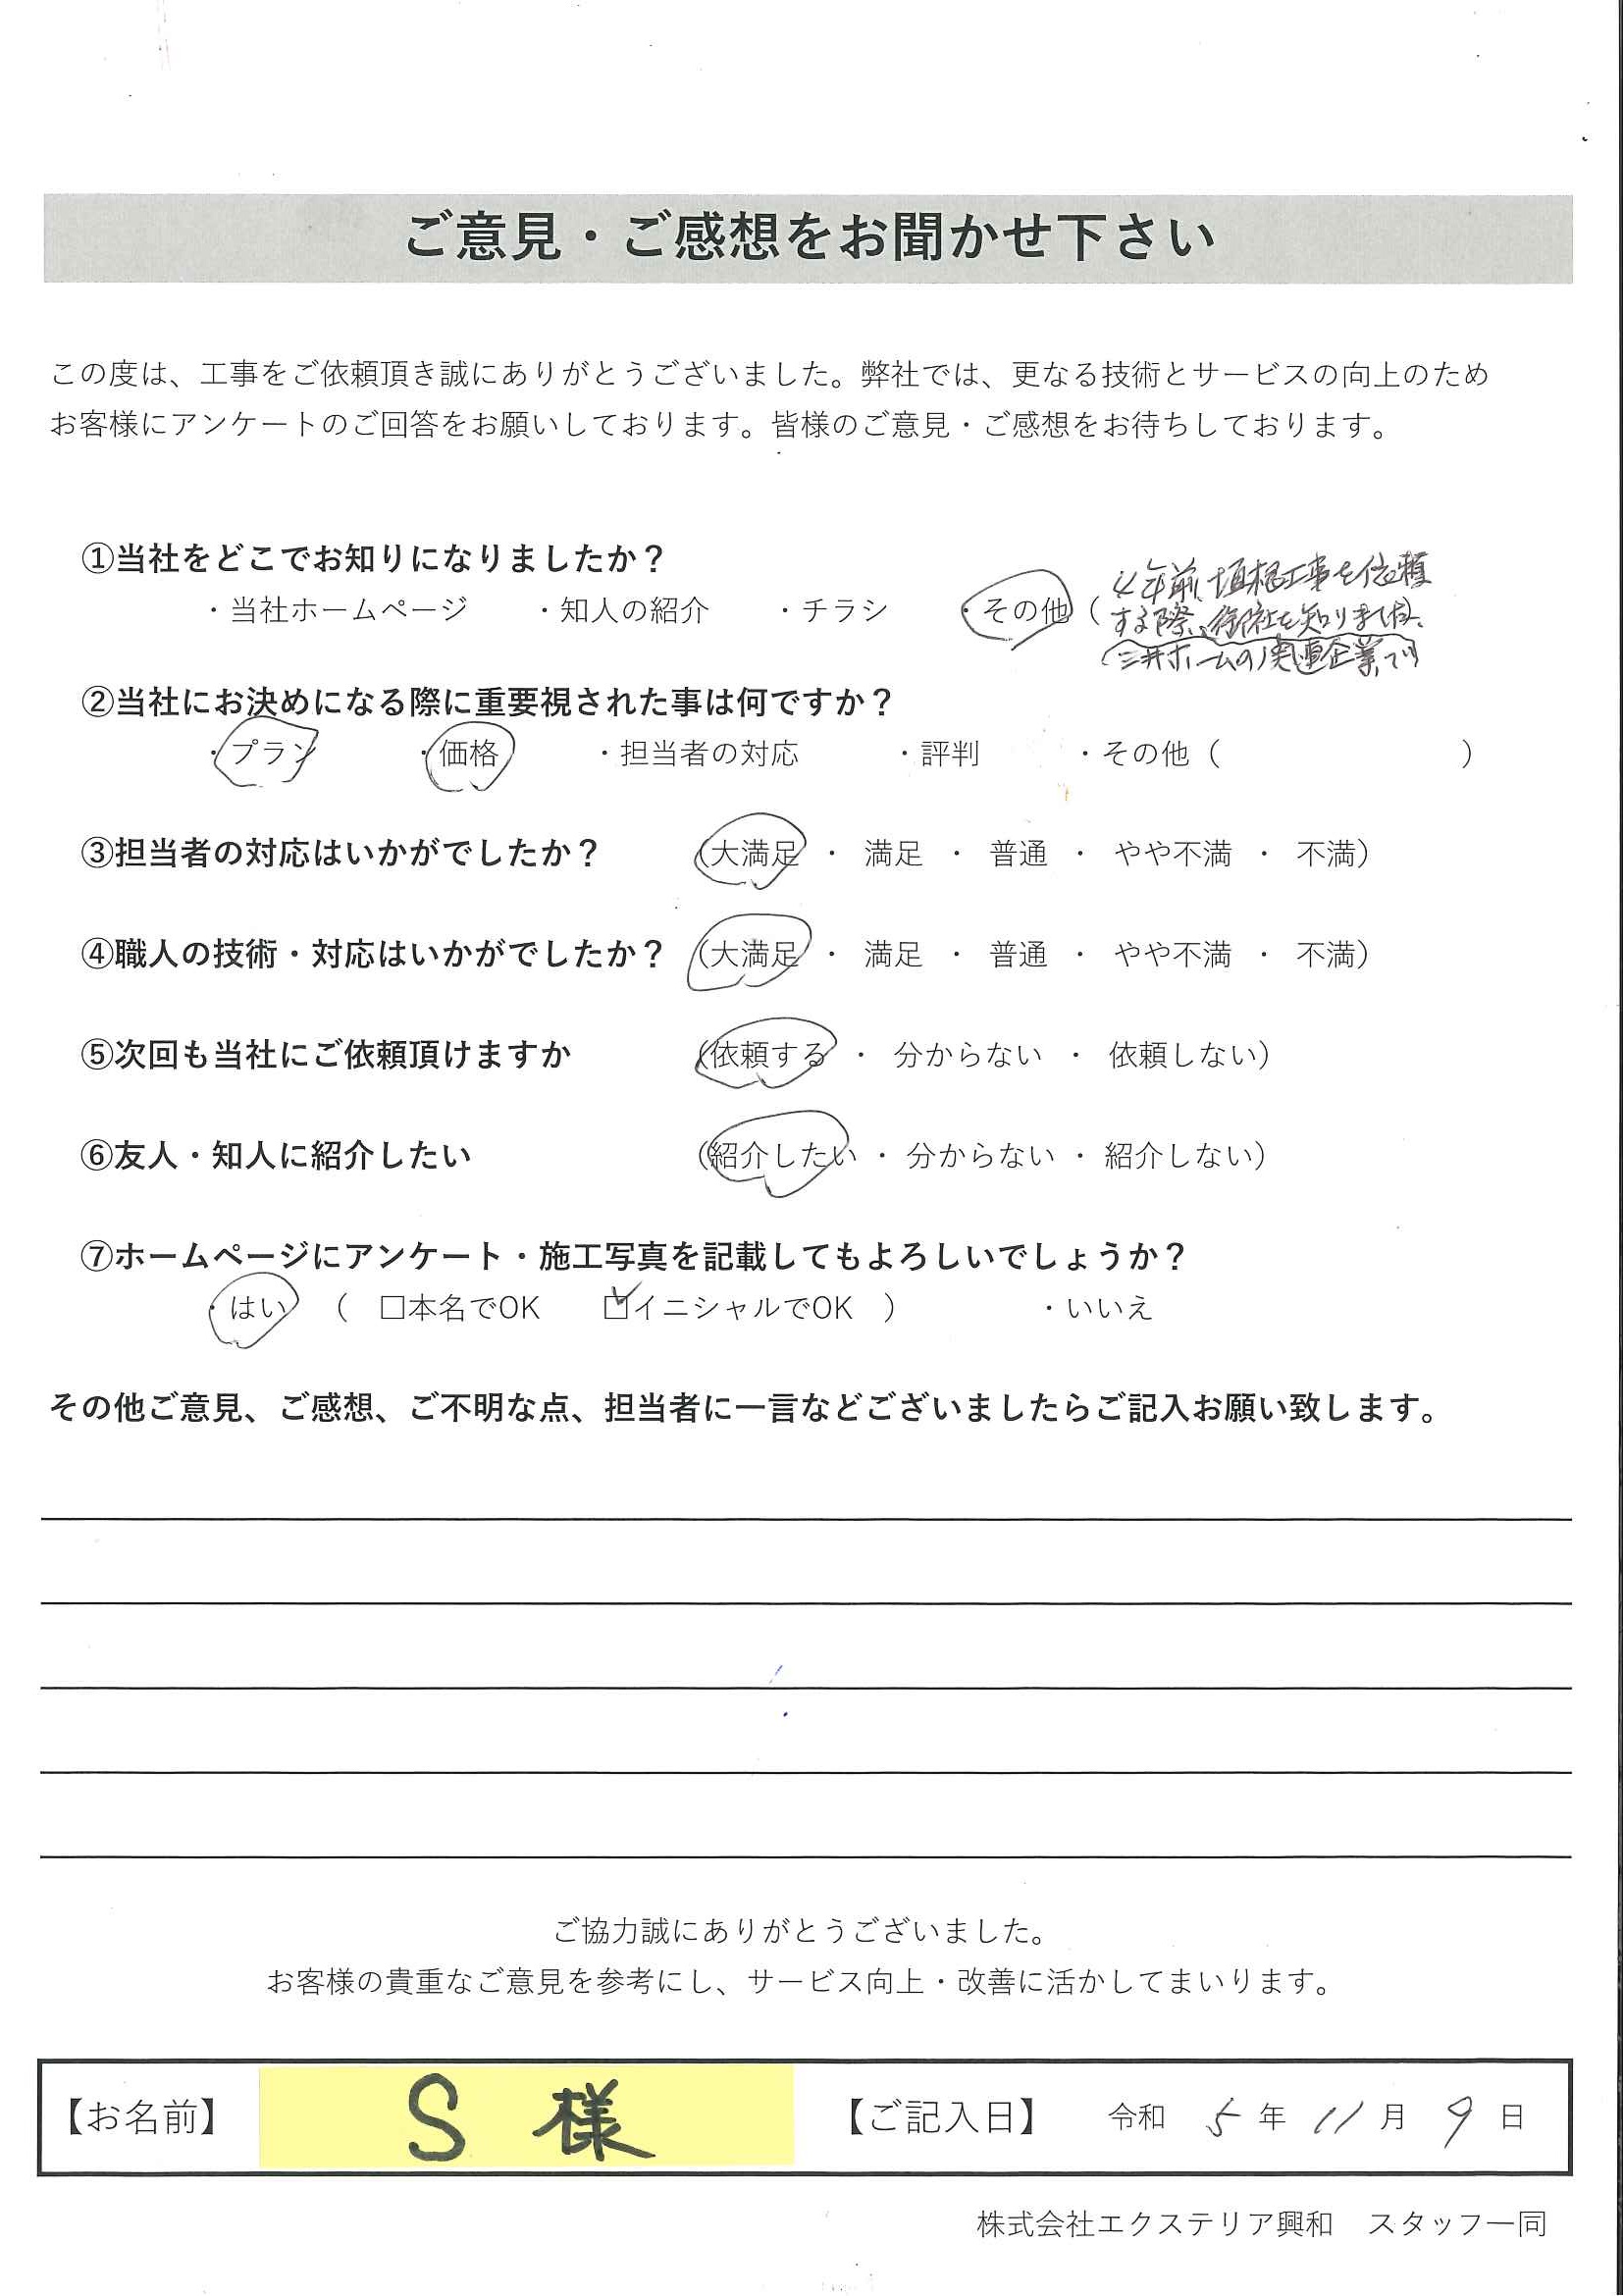 ご意見・ご感想をお聞かせ下さい
この度は、工事をご依頼頂き誠にありがとうございました。弊社では、更なる技術とサービスの向上のため
お客様にアンケートのご回答をお願いしております。皆様のご意見・ご感想をお待ちしております。
①当社をどこでお知りになりましたか？
・当社ホームページ ・知人の紹介 ・チラシ ・その他（
4年前、垣根工事を依頼
する際、御社を知りました。
（三井ホームの関連企業で）
②当社にお決めになる際に重要視された事は何ですか？
・プラン ・価格 ・担当者の対応 ・評判 ・その他（ ）
③担当者の対応はいかがでしたか？ （大満足 ・ 満足 ・ 普通 ・ やや不満 ・ 不満）
④職人の技術・対応はいかがでしたか？ （大満足 ・ 満足 ・ 普通 ・ やや不満 ・ 不満）
⑤次回も当社にご依頼頂けますか （依頼する ・ 分からない ・ 依頼しない）
⑥友人・知人に紹介したい （紹介したい ・ 分からない ・ 紹介しない）
⑦ホームページにアンケート・施工写真を記載してもよろしいでしょうか？
・はい （ □本名でOK ☑イニシャルでOK ） ・いいえ
その他ご意見、ご感想、ご不明な点、担当者に一言などございましたらご記入お願い致します。
ご協力誠にありがとうございました。
お客様の貴重なご意見を参考にし、サービス向上・改善に活かしてまいります。
【お名前】 S 様 【ご記入日】 令和 5 年 11 月 9 日
株式会社エクステリア興和 スタッフ一同